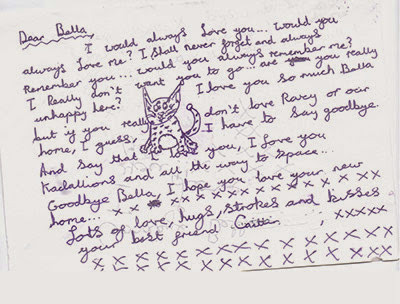 Dear Bella,
I would always love you... would you
always love me? I shall never forget and always
Remember you... would you always remember me?
I Really don't want you to go... are you really
unhappy here? I love you so much Bella
but if you really don't love Ravey or our
home, I guess, I have to say goodbye.
And say that I love you, I Love you
Kadallions and all the way to Space...
Goodbye Bella, I hope you love your new
home... x x x x x x x x x x x x x x
Lots of love, hugs, strokes and kisses
your best friend Caitlin, xxxxx
x x x x x x x x x x x x x x x
x x x x x x x x x x x x x x x